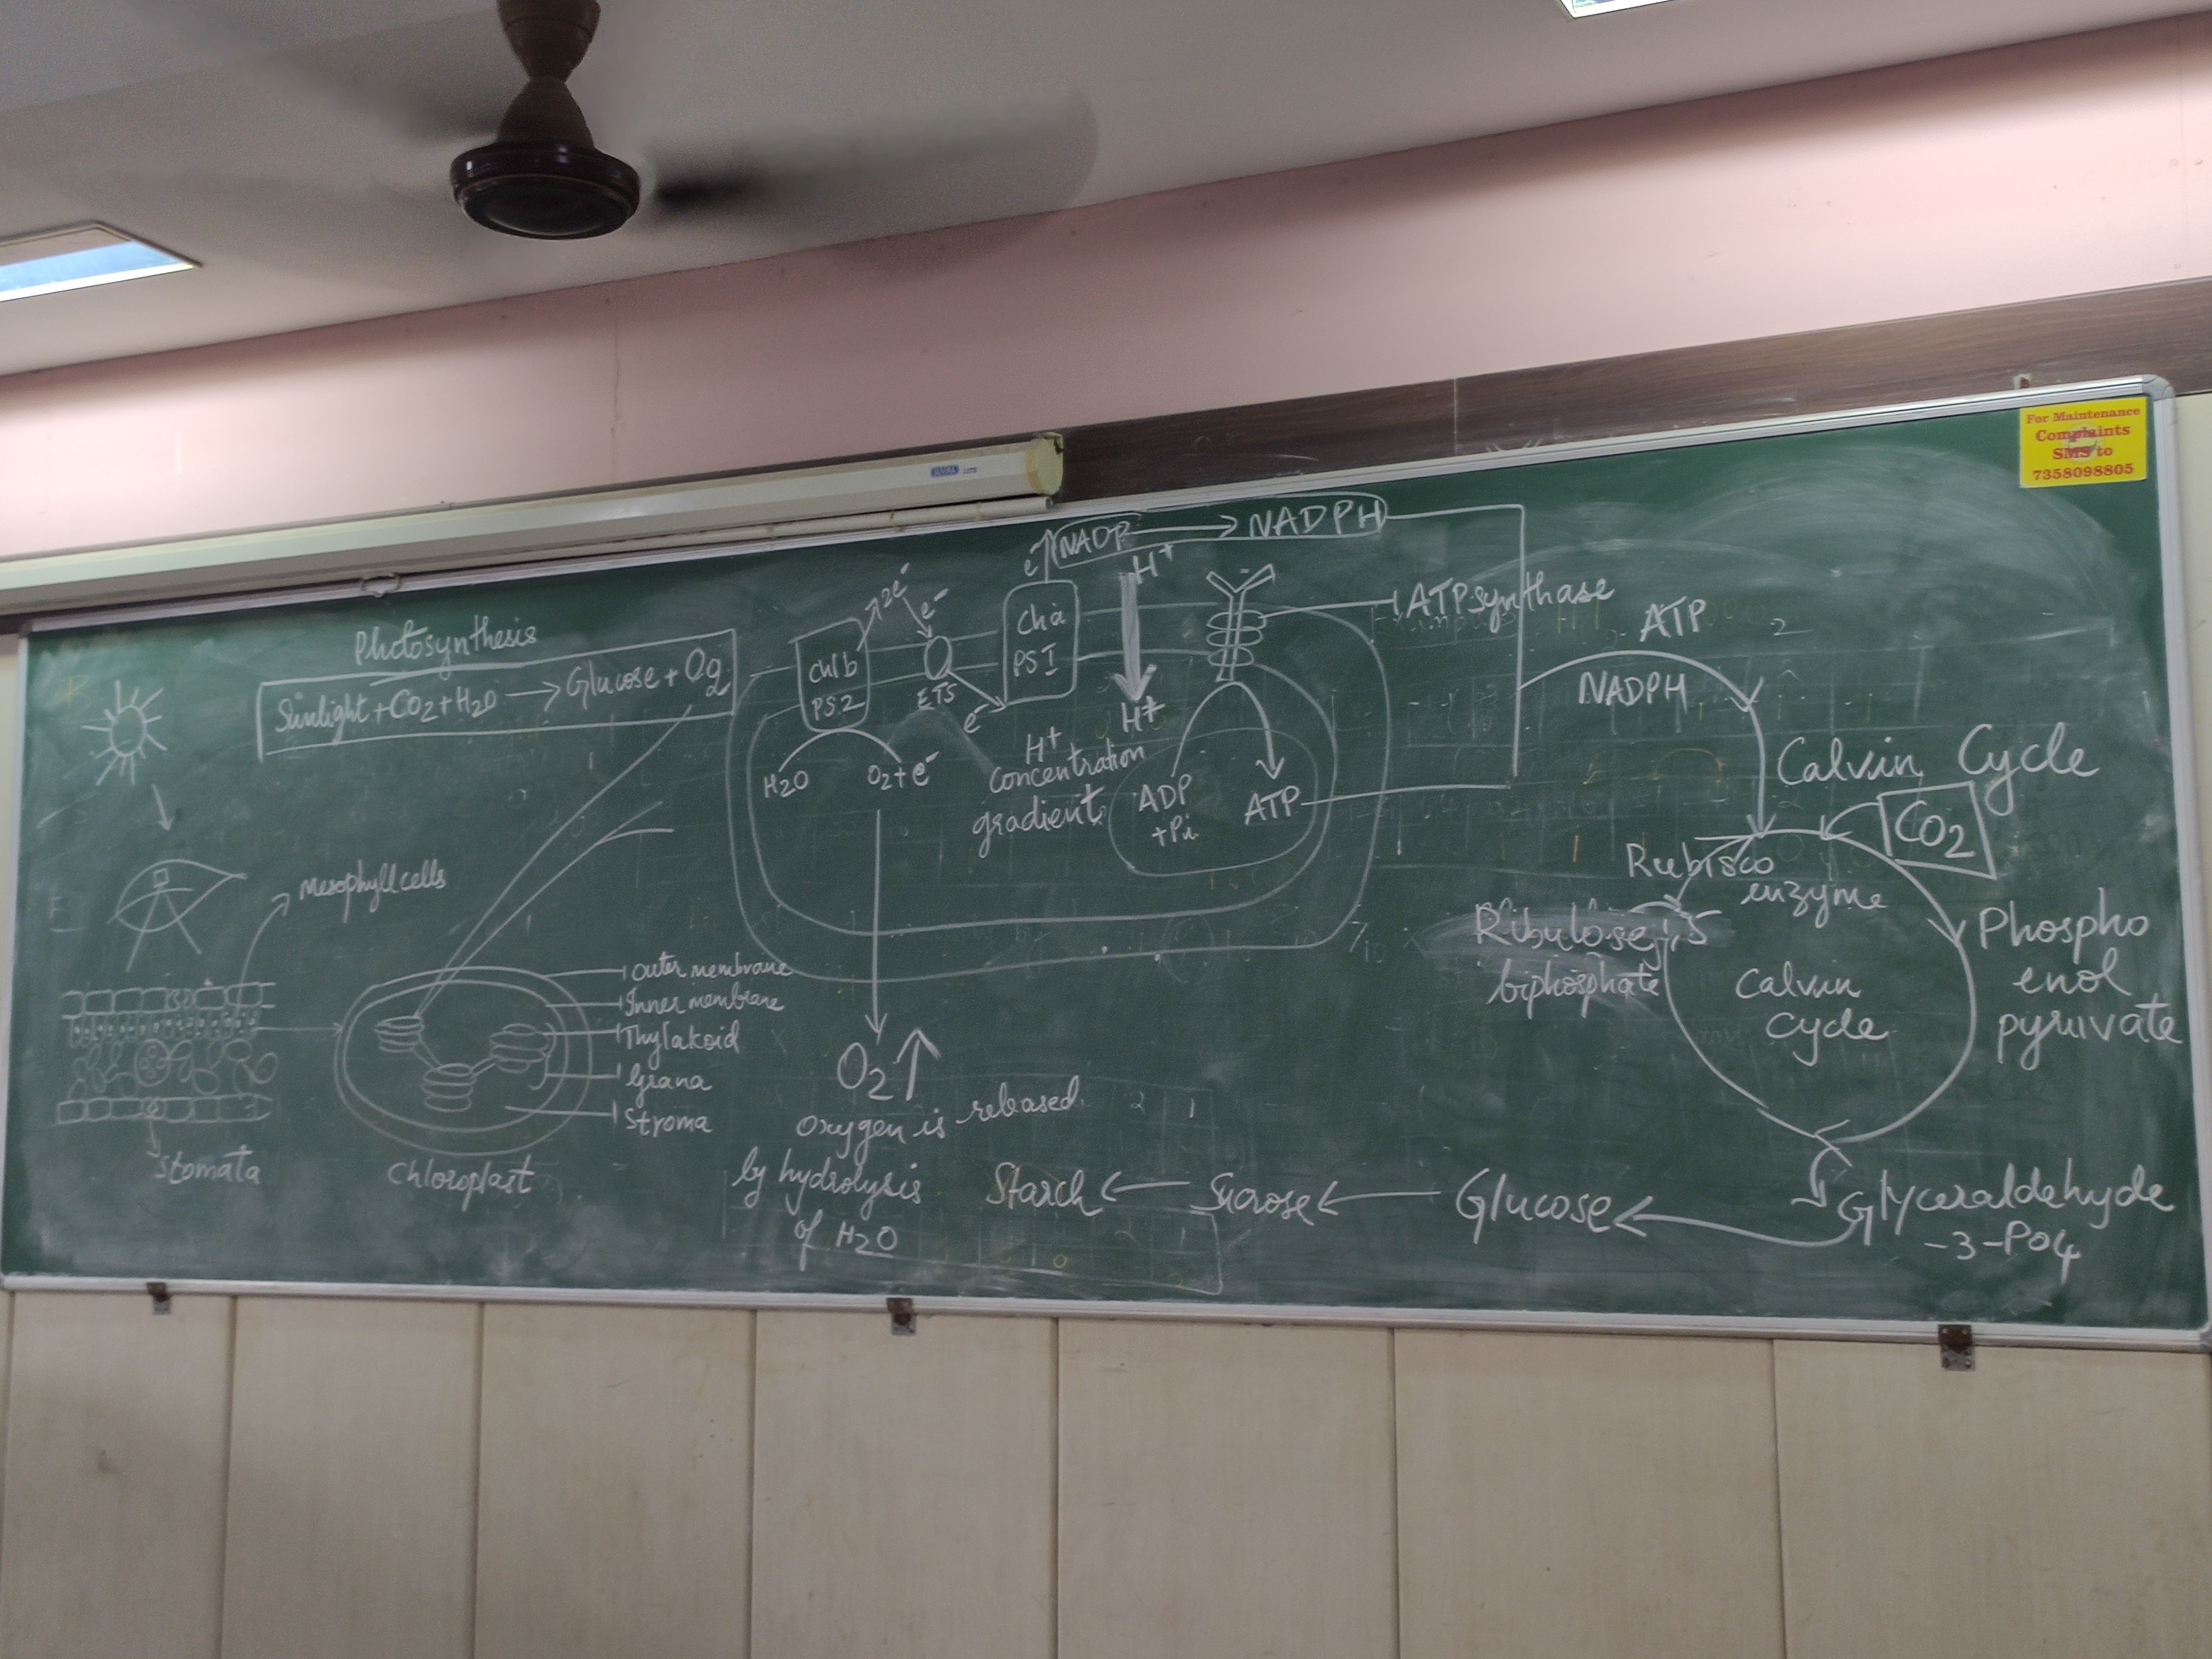 For Maintenance
Complaints
SMS to
7358098805
Photosynthesis
Sunlight + CO2 + H2O → Glucose + O2
Mesophyll cells
Stomata
Outer membrane
Inner membrane
Thylakoid
Grana
Stroma
Chloroplast
Chl b
PS2
2e-
e-
ETS
e-
Ch a
PS I
e-
NADP → NADPH
H+
H+
H+
Concentration
gradient
H2O
O2 + e-
ADP
+Pi
ATP
ATP synthase
O2↑
Oxygen is released
by hydrolysis
of H2O
ATP
NADPH
Calvin Cycle
CO2
Rubisco
enzyme
Ribulose 1,5
biphosphate
Calvin
Cycle
Phospho
enol
pyruvate
Glyceraldehyde
-3-PO4
Starch ← Sucrose ← Glucose ←